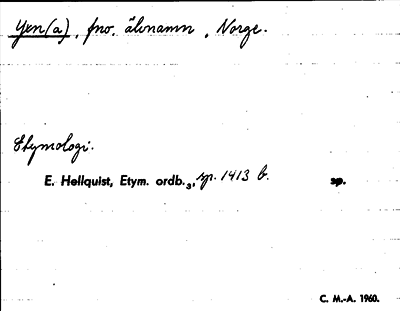 Yxn(a), fno. älvnamn, Norge.
Etymologi.
E. Hellquist, Etym. ordb.3, sp. 1413 b. sp.
C. M.-A. 1960.